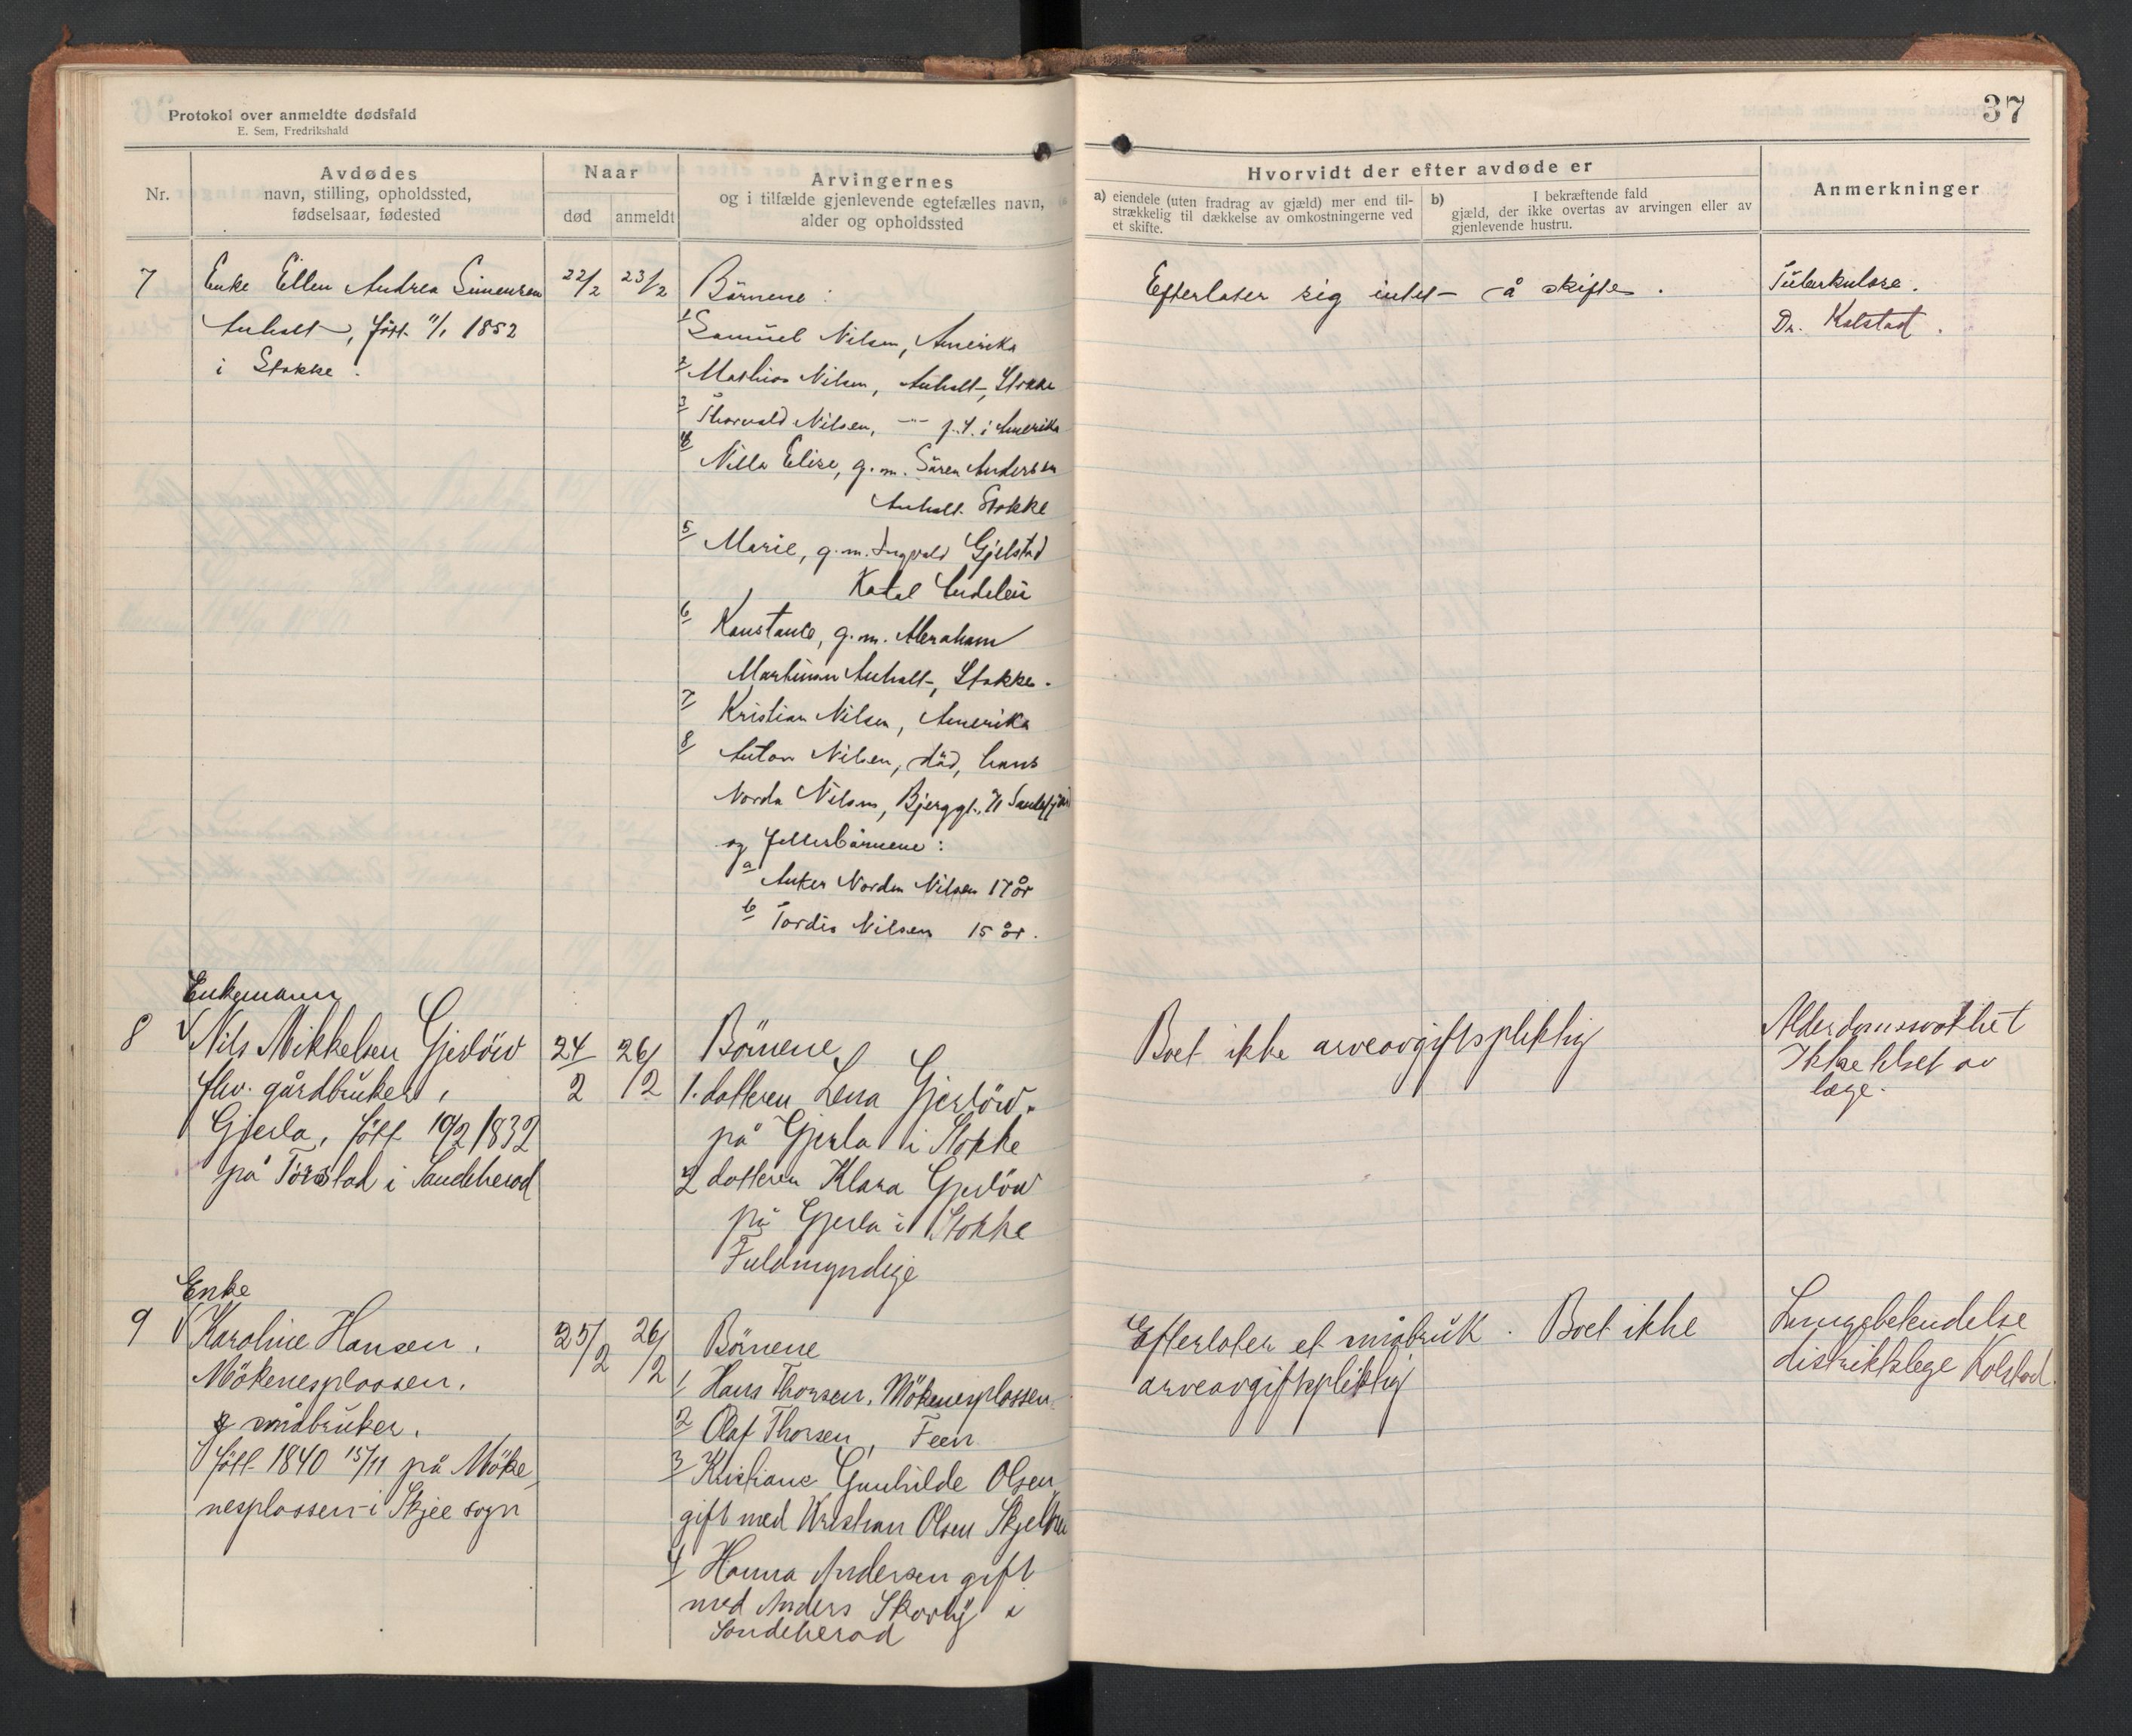 Protokol over anmeldte dødsfald
E. Sem, Fredrikshald
37
Nr.
Avdødes
navn, stilling, opholdssted,
fødselsaar, fødested
Naar
død
anmeldt
Arvingernes
og i tilfælde gjenlevende egtefælles navn,
alder og opholdssted
Hvorvidt der efter avdøde er
a) eiendele (uten fradrag av gjæld) mer end til-
strækkelig til dækkelse av omkostningerne ved
et skifte.
b) I bekræftende fald
gjæld, der ikke overtas av arvingen eller av
gjenlevende hustru.
Anmerkninger
7
Enke Ellen Andrea Simensen
Anholt, född 11/1 1852
i Stokke.
22/2
23/2
Börnene:
1 Samuel Nilsen, Amerika
2 Mathias Nilsen, Anholt, Stokke
3 Thorvald Nilsen, —"— p.t. i Amerika
4 Nilla Elise, g.m. Sören Andersen
Anholt Stokke
5 Marie, g.m. Ingvald Gjelstad
Kodal Andebu
6 Konstance, g.m. Abraham
Martinsen Anholt, Stokke.
7 Kristian Nilsen, Amerika
8 Anton Nilsen, död, hans
Norda Nilsen, Bjerggt. 71 Sandefjord
og fellesbörnene:
a Anker Nordm Nilsen 17 år
b Tordis Nilsen 15 år.
Efterlater sig intet å skifte.
Tuberkulose.
Dr. Kolstad.
8
Enkemann
Nils Mikkelsen Gjerlöw
fhv. gårdbruker,
Gjerla, född 10/2 1832
på Torstad i Sandeherad
24/2
26/2
Börnene
1. datteren Lena Gjerlöw.
på Gjerla i Stokke
2 datteren Klara Gjerlöw
på Gjerla i Stokke
Fuldmyndige
Boet ikke arveavgiftspliktig
Alderdomssvakhet
Ikke tilset av
læge.
9
Enke
Karoline Hansen.
Mökenesplassen.
småbruker.
född 1840 15/11 på Möke
nesplassen i Skjee sogn
25/2
26/2
Börnene
1 Hans Thorsen, Mökenesplassen
2 Olaf Thorsen, Feen
3 Kristiane Gunhilde Olsen
gift med Kristian Olsen Skjelbru
4 Hanna Andersen gift
med Anders Skorby i
Sandeherad
Efterlater et småbruk. Boet ikke
arveavgiftspliktig
Lungebetendelse
distriktslege Kolstad.